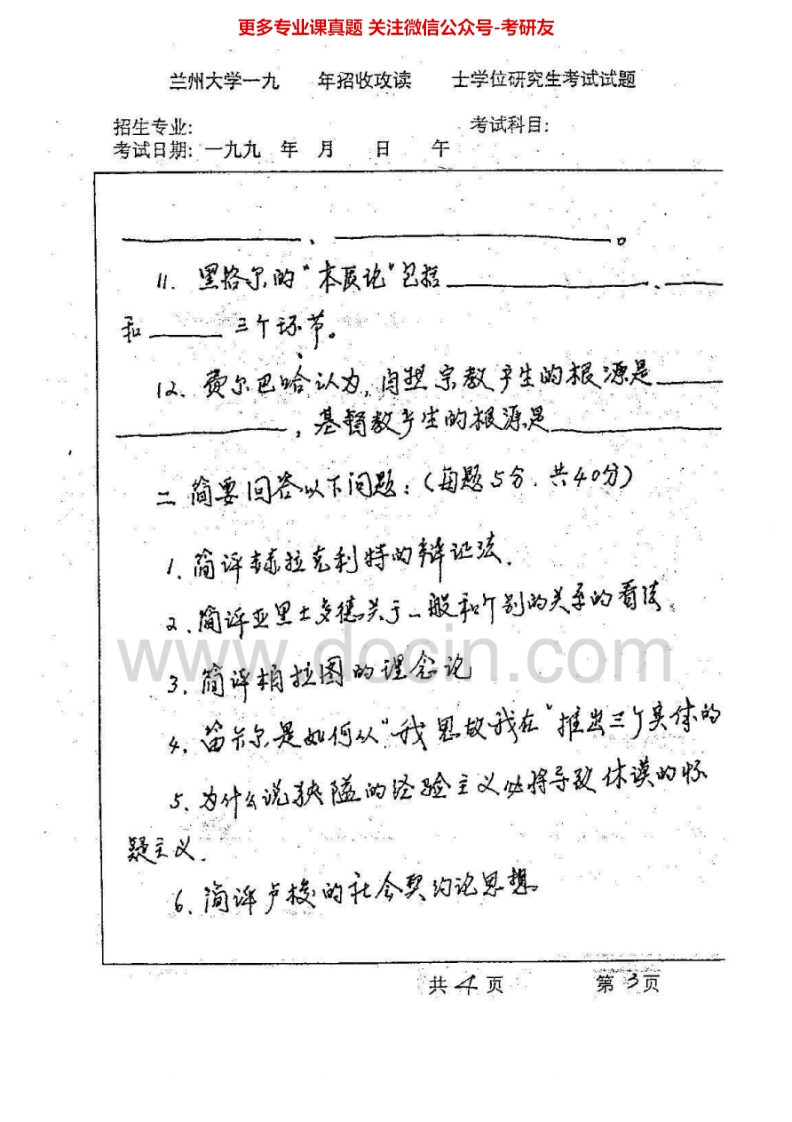 更多专业课真题 关注微信公众号-考研友
兰州大学一九 年招收攻读 士学位研究生考试试题
招生专业: 考试科目:
考试日期: 一九九 年 月 日 午
、 。
11. 黑格尔的“本质论”包括 、
和 三个环节。
12. 费尔巴哈认为, 自然宗教产生的根源是
, 基督教产生的根源是
二 简要回答以下问题:(每题5分. 共40分)
1. 简评赫拉克利特的辩证法.
2. 简评亚里士多德关于一般和个别的关系的看法。
www.docin.com
3. 简评柏拉图的理念论
4. 笛卡尔是如何从“我思故我在”推出三个实体的
5. 为什么说狭隘的经验主义必将导致休谟的怀
疑主义.
6. 简评卢梭的社会契约论思想
共 4 页 第 3 页